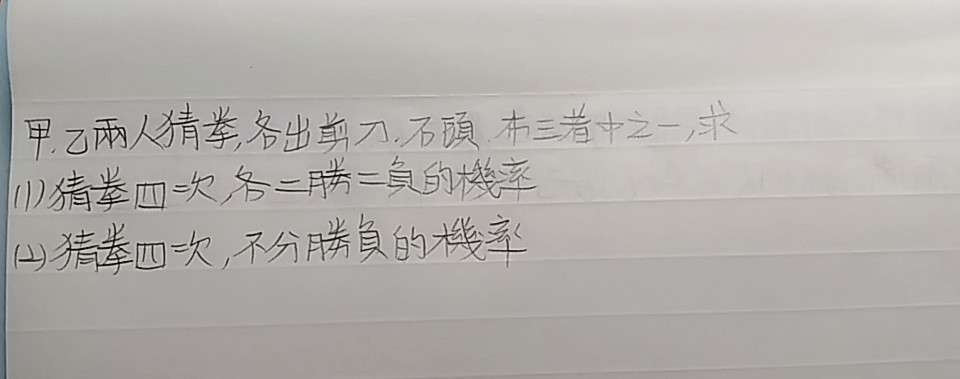 甲.乙兩人猜拳,各出剪刀.石頭.布三者中之一,求
(1)猜拳四次,各二勝二負的機率
(2)猜拳四次,不分勝負的機率